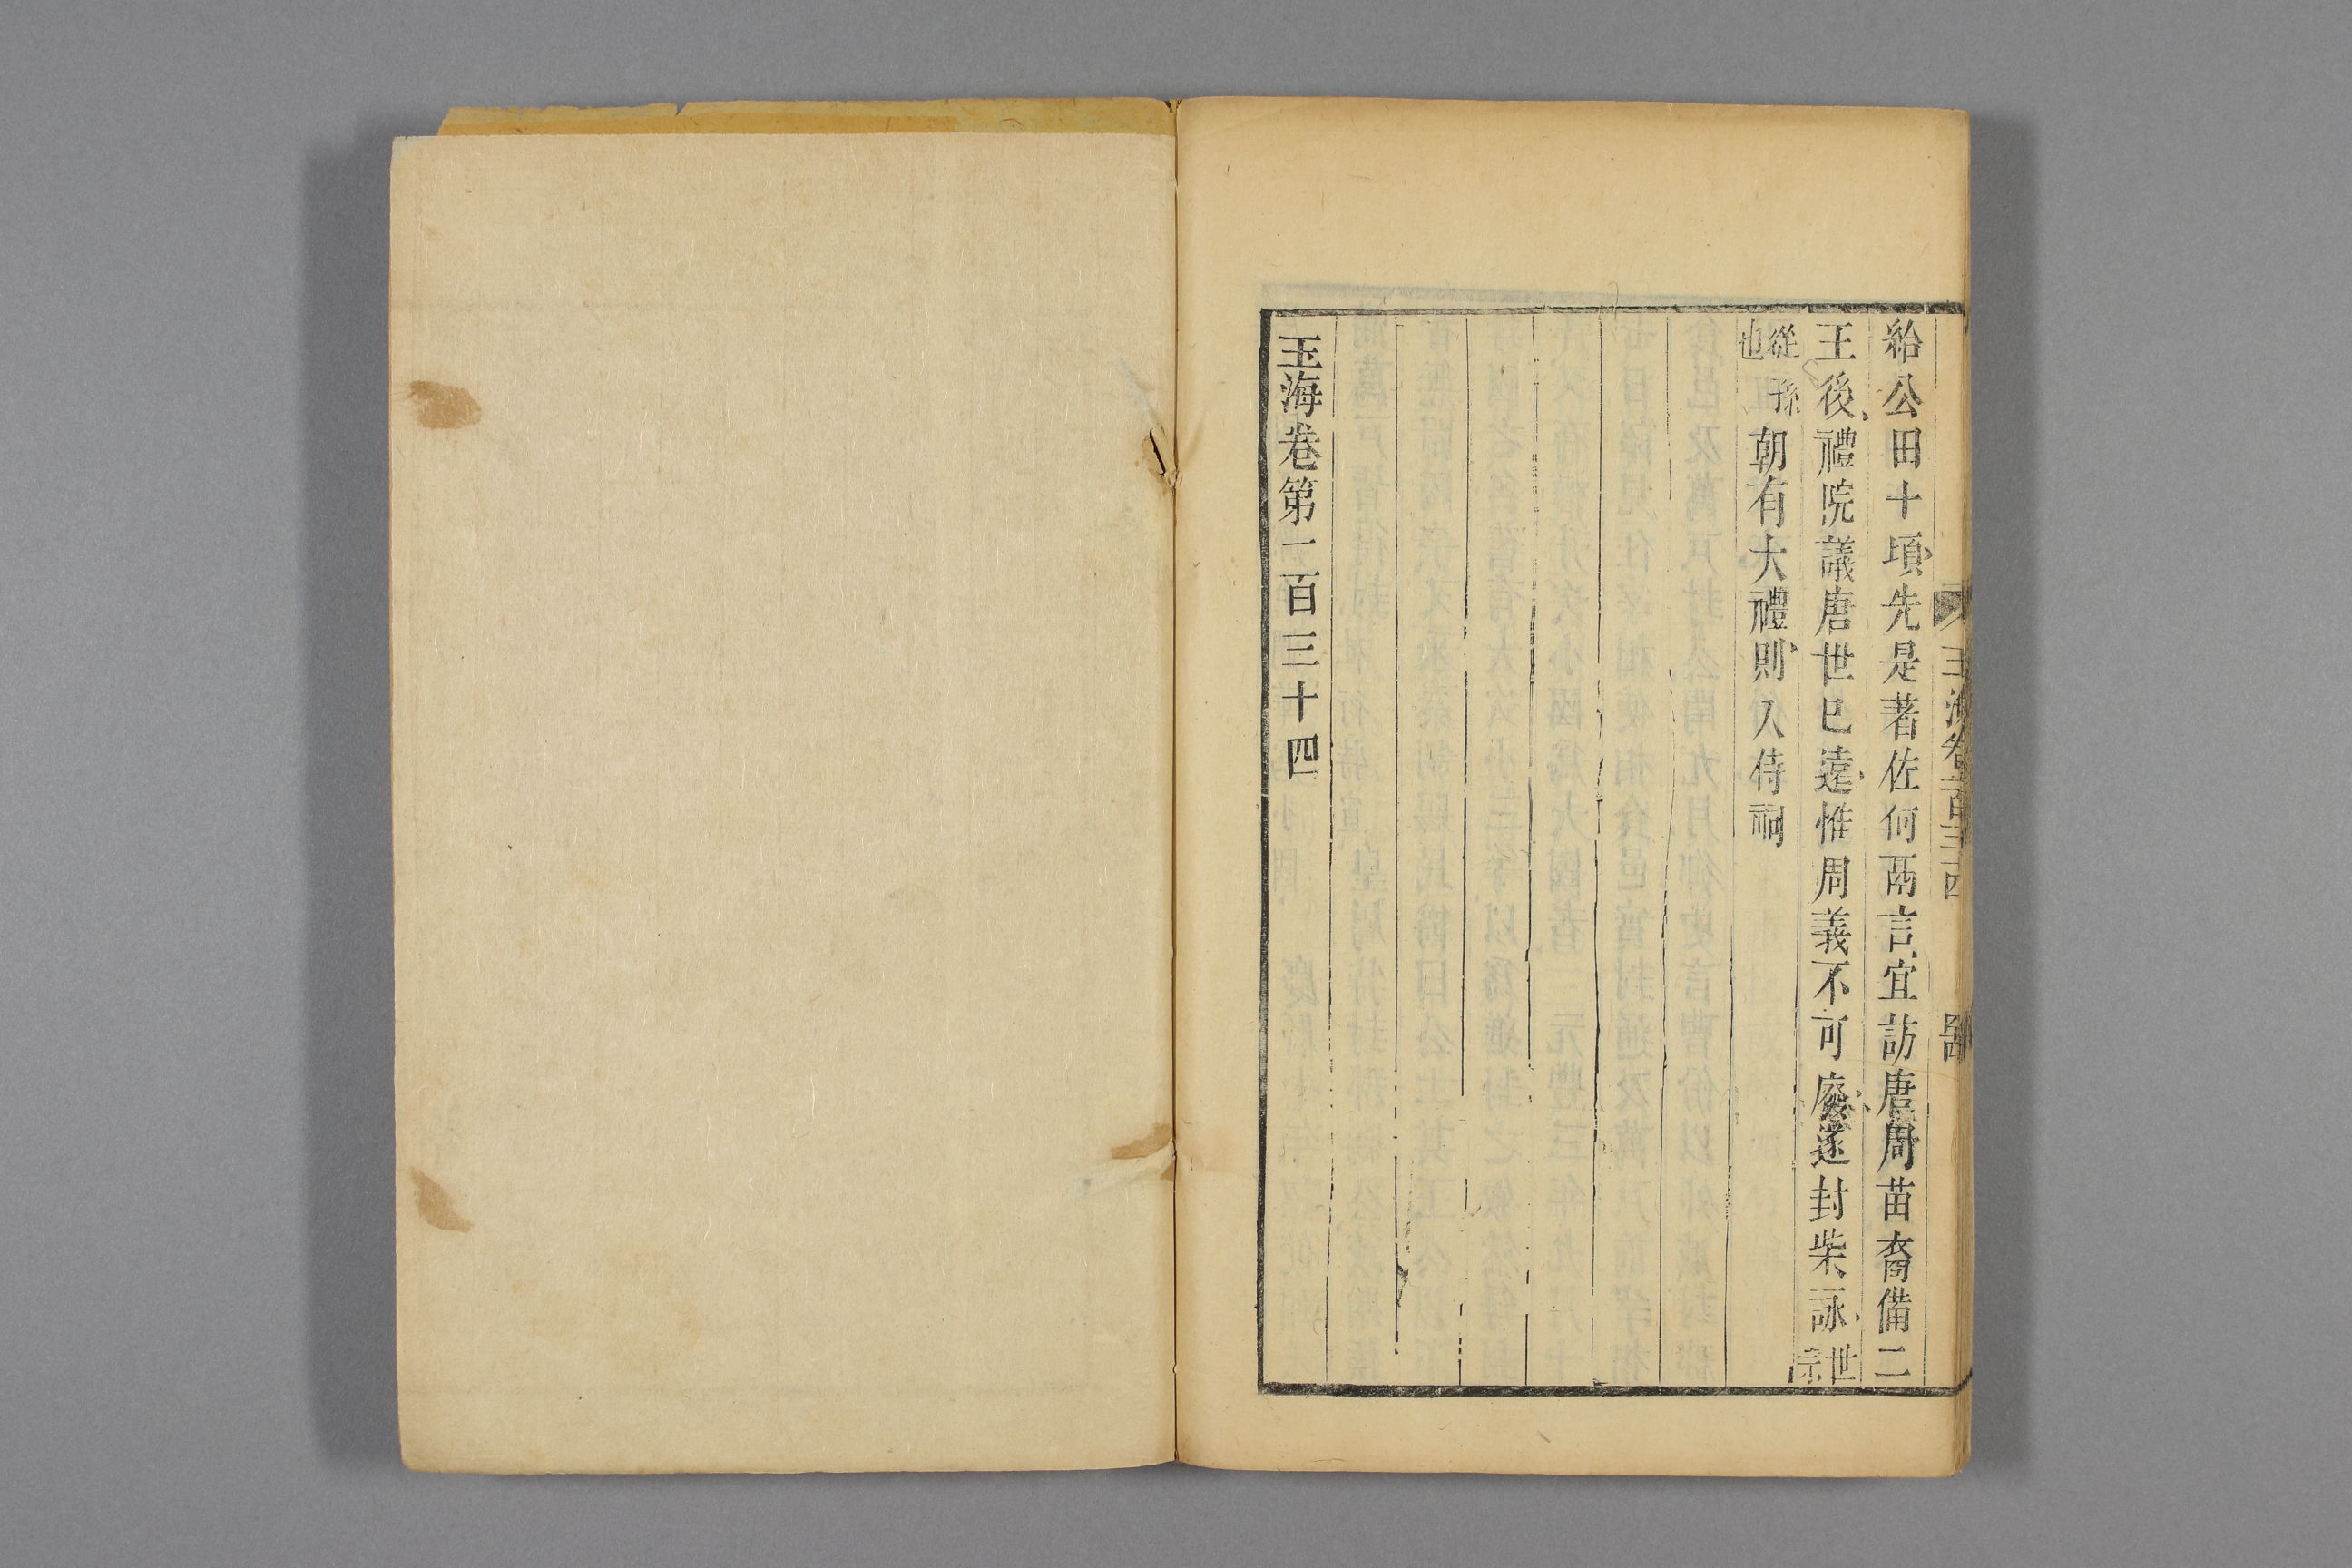 玉海卷一百三十四
給公田十頃先是著佐何鬲言宜訪唐周苗裔備二
王後禮院議唐世已遠惟周義不可廢遂封柴詠世宗
從孫也朝有大禮則入侍祠
玉海卷第一百三十四